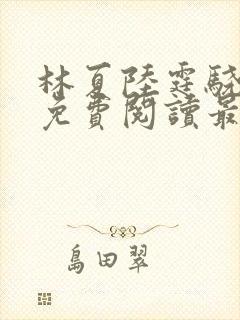 林夏陸霆驍
免費閱讀最
島田翠